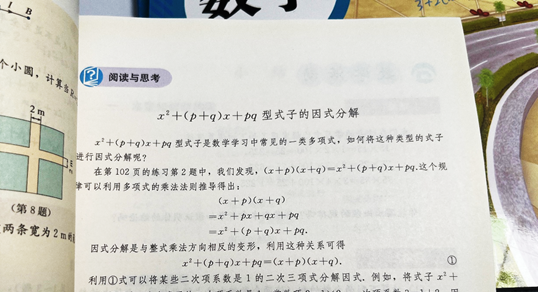 数学
B
个小圆，计算当
2 m
（第 8 题）
两条宽为 2 m
阅读与思考
x²＋(p＋q)x＋pq 型式子的因式分解
x²＋(p＋q)x＋pq 型式子是数学学习中常见的一类多项式，如何将这种类型的式子
进行因式分解呢？
在第 102 页的练习第 2 题中，我们发现，(x＋p)(x＋q)＝x²＋(p＋q)x＋pq.这个规
律可以利用多项式的乘法法则推导得出：
(x＋p)(x＋q)
＝x²＋px＋qx＋pq
＝x²＋(p＋q)x＋pq.
因式分解是与整式乘法方向相反的变形，利用这种关系可得
x²＋(p＋q)x＋pq＝(x＋p)(x＋q). ①
利用①式可以将某些二次项系数是 1 的二次三项式分解因式. 例如，将式子 x²＋